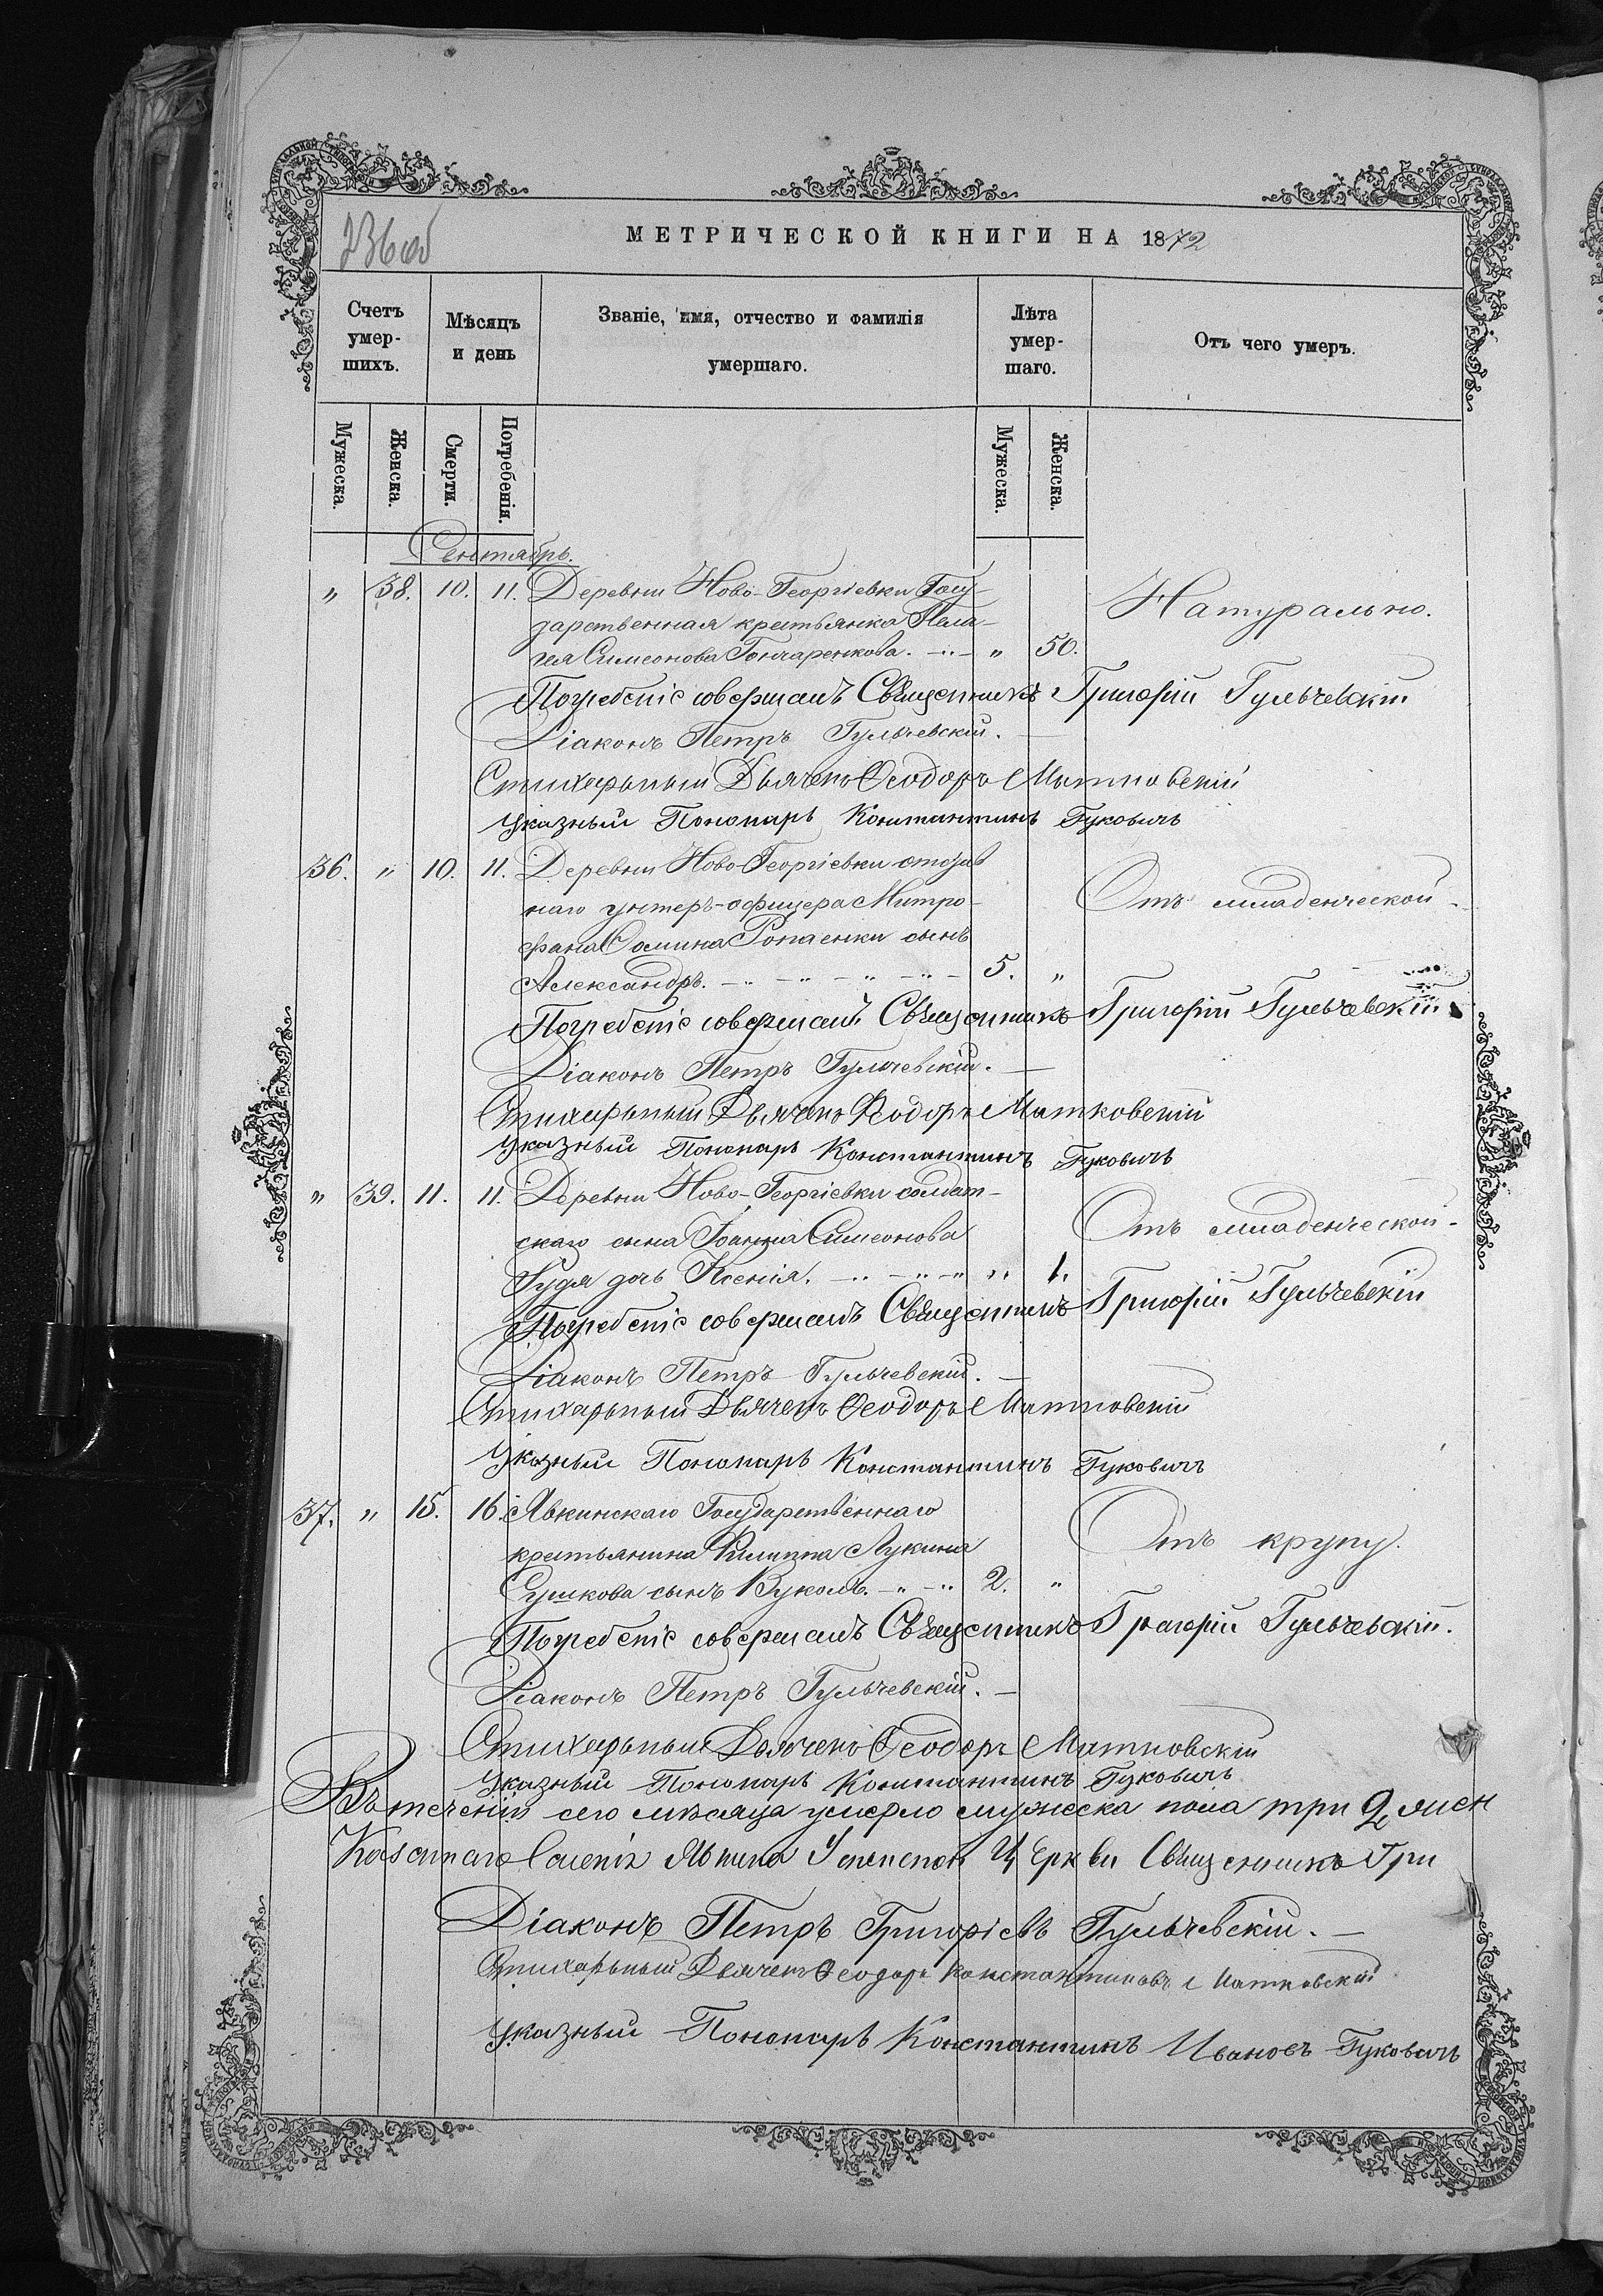 236об
МЕТРИЧЕСКОЙ КНИГИ НА 1872
Счетъ умер-шихъ.
Мѣсяцъ и день
Званіе, имя, отчество и фамилія умершаго.
Лѣта умер-шаго.
Отъ чего умеръ.
Мужеска.
Женска.
Смерти.
Погребенія.
Мужеска.
Женска.
Сентябрь.
" 38. 10. 11. Деревни Ново-Георгіевки Госу-
дарственная крестьянка Пела-
гея Симеонова Гончаренкова. " 50.
Натурально.
Погребеніе совершалъ Священникъ Григорій Гульчевскій
Діаконъ Петръ Гульчевскій.
Стихарьный Дьячекъ Ѳеодоръ Матковскій
Указный Пономарь Константинъ Гуковичъ
36. " 10. 11. Деревни Ново-Георгіевки отстав
наго унтеръ-офицера Митро-
фана Сомина Ропаенки сынъ
Александръ. 5. "
Отъ младенческой
Погребеніе совершалъ Священникъ Григорій Гульчевскій
Діаконъ Петръ Гульчевскій.
Стихарьный Дьячекъ Ѳеодоръ Матковскій
Указный Пономарь Константинъ Гуковичъ
" 39. 11. 11. Деревни Ново-Георгіевки солдат-
скаго сына Іоанна Симеонова
дочь Ксенія. " 1.
Отъ младенческой
Погребеніе совершалъ Священникъ Григорій Гульчевскій
Діаконъ Петръ Гульчевскій.
Стихарьный Дьячекъ Ѳеодоръ Матковскій
Указный Пономарь Константинъ Гуковичъ
37. " 15. 16. Явкинскаго Государственнаго
крестьянина Филиппа Лукина
Сушкова сынъ Вуколъ. 2. "
Отъ крупу.
Погребеніе совершалъ Священникъ Григорій Гульчевскій.
Діаконъ Петръ Гульчевскій.
Стихарьный Дьячекъ Ѳеодоръ Матковскій
Указный Пономарь Константинъ Гуковичъ
Въ теченіи сего мѣсяца умерло мужеска пола три
Казеннаго Селенія Явкина Успенской Церкви Священникъ Гри
Діаконъ Петръ Григоріевъ Гульчевскій.
Стихарьный Дьячекъ Ѳеодоръ Константиновъ Матковскій
Указный Пономарь Константинъ Ивановъ Гуковичъ